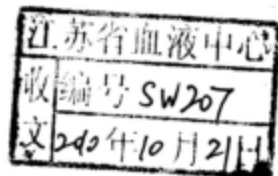 江苏省血液中心
收文
编号 SW207
2010年10月21日